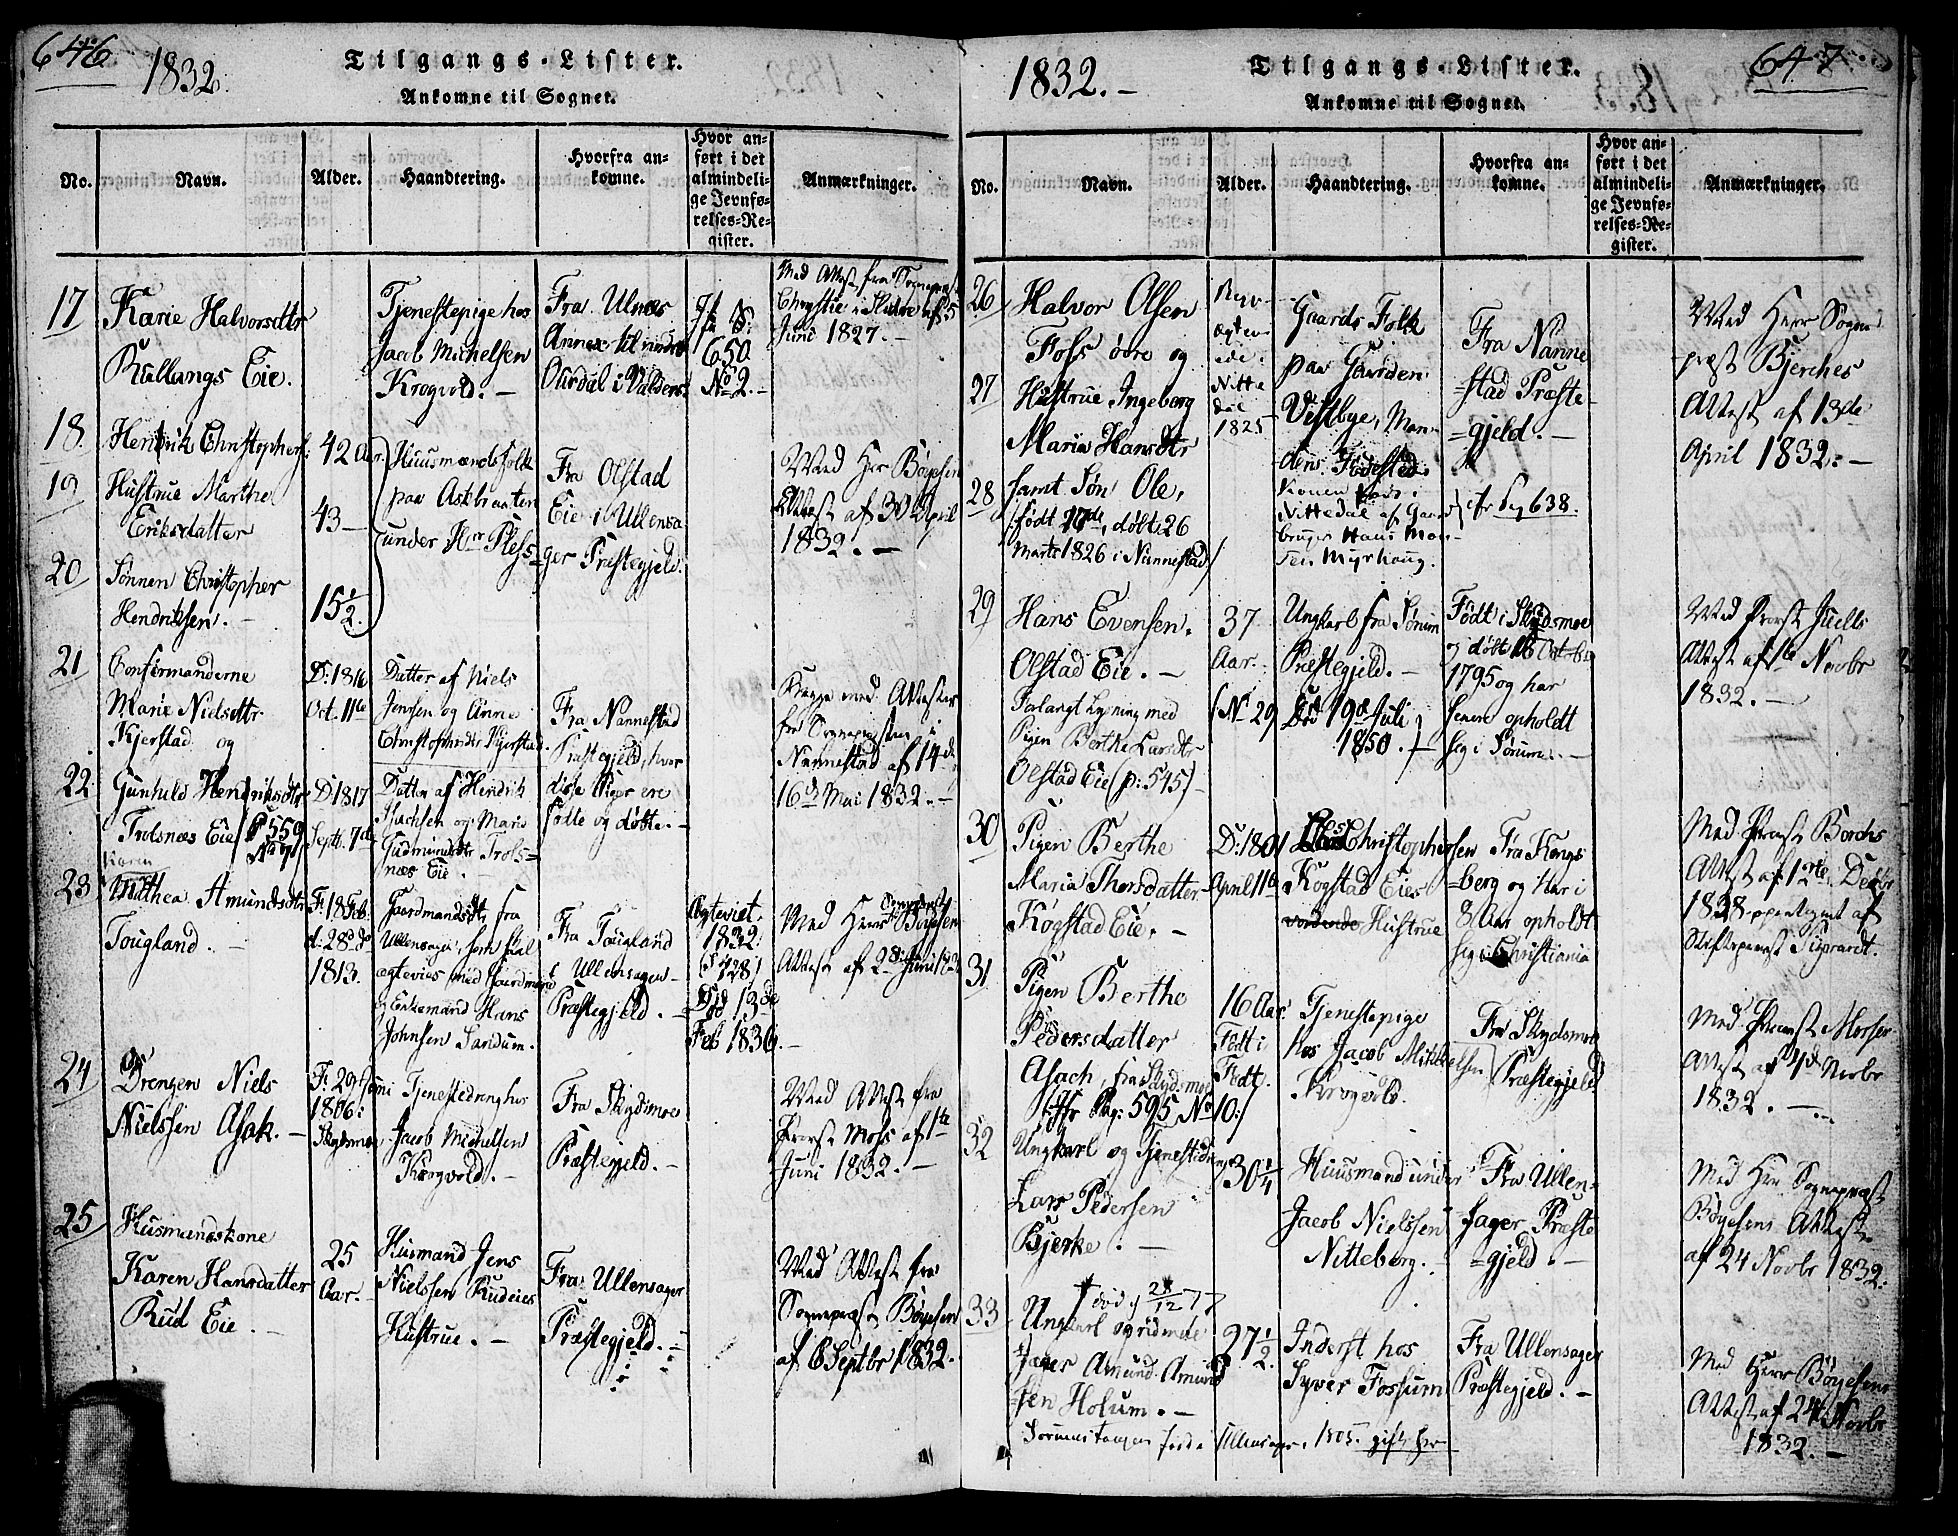 646
1832.
Tilgangs-Lister.
Ankomne til Sognet.
No.
Navn.
Alder.
Haandtering.
Hvorfra an-
komne.
Hvor an-
ført i det
almindeli-
ge Jevnfø-
relses-Re-
gister.
Anmærkninger.
17
Karie Halvorsdtr
Rullangs Eie.
Tjenestepige hos
Jacob Michelsen
Krogvold. -
Fra Ulnæs
Annex til nordre
Ourdal i Valders.
650
No 2. -
Med Attest fra Sognepræst
Chrystie i Slidre af 5
Juni 1827. -
18.
Hendrik Christophers.
42 Aar.
Huusmandsfolk
paa Askbraaten
under Hr Pless-
Fra Olstad
Eie i Ullensa
ger Præstegjeld.
Med Hr Bøyesen
Attest af 30 April
1832. -
19
Hustrue Marthe
Eriksdatter
43 -
20
Sønnen Christopher
Hendriksen. -
15 1/2.
21
Confirmanderne
Marie Nielsdtr.
Kjerstad og
D: 1816
Oct. 11te
Datter af Niels
Jensen og Anne
Christophersdtr Kjerstad.
Fra Nannestad
Præstegjeld, hvor
disse Piger ere
fødte og døbte. -
Begge med Attester
fra Sognepræsten i
Nannestad af 14de
16de Mai 1832. -
22
Gunhild Hendriksdtr
Trolsnæs Eie (P 559
No 7)
D. 1817
Septb. 7de
Datter af Hendrik
og Marie
Gudmundsdtr Trols-
næs Eie. -
23
Karen
Mathea Amundsdtr
Tougland. -
F: 18 Feb.
d. 28de do
1813.
Gaardmandsdtr fra
Ullensager, som skal
ægtevies med Gaardmand
og Enkemand Hans
Johnsen Sandum. -
Fra Tougland
i Ullensager-
Præstegjeld. -
Ægteviet
1832.
(P 428)
Død 13de
Feb 1836. -
Med Herr Bøyesens
Attest af 28 Juni 1832
24
Drengen Niels
Nielssen Asak. -
F: 29 Juni
1806:
Skydsmoe
Tjenestedreng hos
Jacob Michelsen
Krogvold. -
Fra Skydsmoe
Præstegjeld. -
Med Attest fra
Provst Moss af 1te
Juni 1832. -
25
Husmandskone
Karen Hansdatter
Rud Eie. -
25
Aar. -
Husmand Jens
Nielssen Rudeies
Hustrue. -
Fra Ullensager
Præstegjeld. -
Med Attest fra
Sognepræst Bøyesen
af 6 Septbr 1832.
1832. -
Tilgangs-Lister.
Ankomne til Sognet.
647
No.
Navn.
Alder.
Haandtering.
Hvorfra an-
komne.
Hvor an-
ført i det
almindeli-
ge Jevnfø-
relses-Re-
gister.
Anmærkninger.
26
Halvor Olsen
Foss övre og
27
Hustrue Ingeborg
Maria Hansdtr
28
samt Søn Ole,
født 10de, døbt 26
Marts 1826 i Nannestad
Nitte
dal
1825
Gaards Folk
paa Gaarden
Vestbye, Man-
dens Fødested.
Konen
Nittedal af Gaard
bruger Hans Mon-
sen Myrhaug.
Fra Nanne
=stad Præste-
=gjeld. -
cfr Pag 638.
Med Herr Sogne
præst Bjerches
Attest af 13de
April 1832. -
29
Hans Evensen.
Olstad Eie. -
Forlangt Lysning med
Pigen Berthe Larsdtr
Olstad Eie (p: 545) -
37
Aar. -
(No 29)
Ungkarl fra Sørum
Præstegjeld. -
Død 19de Juli
1850. -
Født i Skydsmoe
og døbt 16 Octbr
1795 og har
senere opholdt
seg i Sørum. -
Med Provst Juells
Attest af 16 Novbr
1832. -
30
Pigen Berthe
Maria Thorsdatter-
Kogstad Eie. -
D: 1801
April 11te
Christophersen
Kogstad Eies
vordende Hustrue
Fra Kongs
=berg og har i
8 Aar opholdt
seg i Christiania
Med Præst Borchs
Attest af 12te Decbr
1828 paategnet af
Stiftsprovst Sigwardt.
31
Pigen Berthe
Pedersdatter
Asach, fra Skydsmoe
Cfr Pag: 595 No 10:/
16 Aar.
Født i
Fedt.
Tjenestepige
hos Jacob Mikkelsen
Krogvold.
Fra Skydsmoe
Præstegjeld
Med Provst Mosses
Attest af 7de Novbr
1832. -
32
Ungkarl og Tjenestedreng
Lars Pedersen
Bjerke. -
30 1/4
Huusmand under
Jacob Nielssen
Nitteberg. -
Fra Ullen-
sager Præste
=gjeld. -
Med Hrr Sognepræst
Bøyesens Attest
af 24 Novbr 1832.
33
død 24/12 77
Ungkarl og ridende
Jæger Amund Amund
sen Holum. -
27 1/2
Inderst hos
Syver Fossum
Fra Ullensager
Præstegjeld. -
Med Herr Bøyesens
Attest af 24 Novbr
1832. -
født i Ullensager. 1805. gift